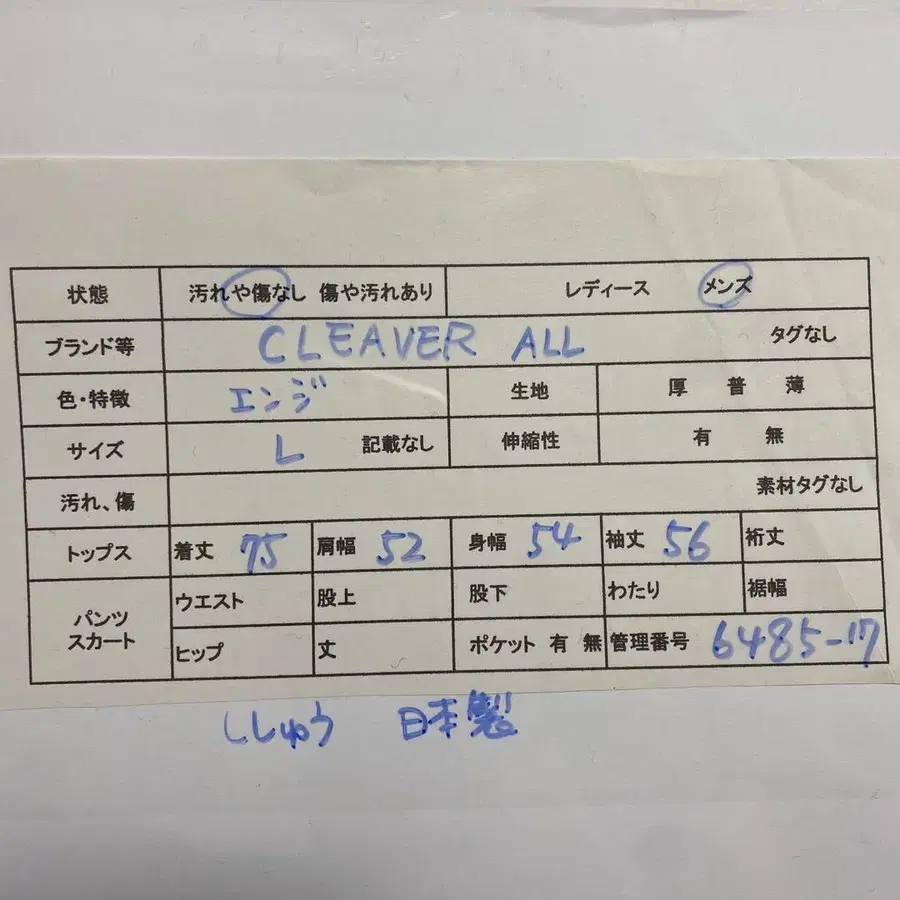 状態 汚れや傷なし 傷や汚れあり レディース メンズ
ブランド等 CLEAVER ALL タグなし
色・特徴 エンジ 生地 厚 普 薄
サイズ L 記載なし 伸縮性 有 無
汚れ、傷 素材タグなし
トップス 着丈 75 肩幅 52 身幅 54 袖丈 56 裄丈
パンツ スカート ウエスト 股上 股下 わたり 裾幅
ヒップ 丈 ポケット 有 無 管理番号 6485-17
ししゅう 日本製